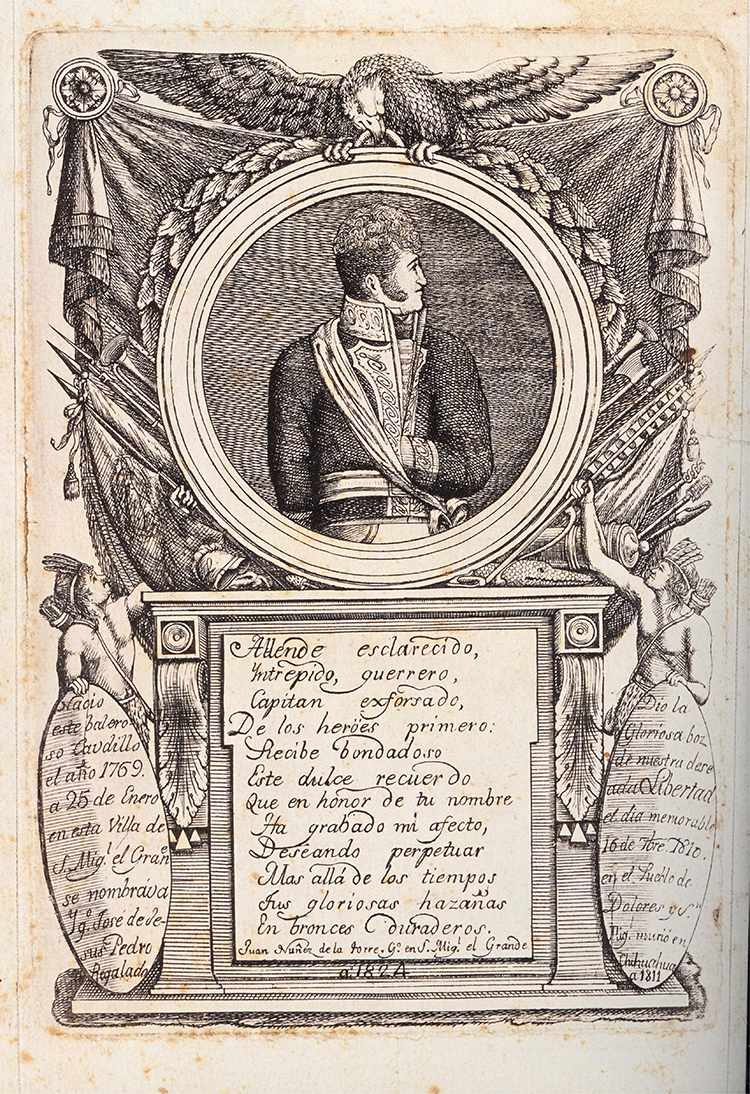 Allende esclarecido,
Yntrepido, guerrero,
Capitan exforsado,
De los heröes primero:
Recibe bondadoso
Este dulce recuerdo
Que en honor de tu nombre
Ha grabado mi afecto,
Deseando perpetuar
Mas allá de los tiempos
Sus gloriosas hazañas
En bronces duraderos.
Juan Nuñez de la torre, Gº. en S. Migl. el Grande
a. 1824.
Nacio
este balero-
so Caudillo
el año 1769.
a 25 de Enero
en esta Villa de
S. Migl. el Grane.
se nombraba
Ygº. José de Je-
sus Pedro
Regalado
Dio la
Gloriosa boz
de nuestra dese
ada Libertad
el dia memorable
16 de 7bre. 1810.
en el Pueblo de
Dolores y Sn.
Migl. murió en
Chihuahua
a 1811